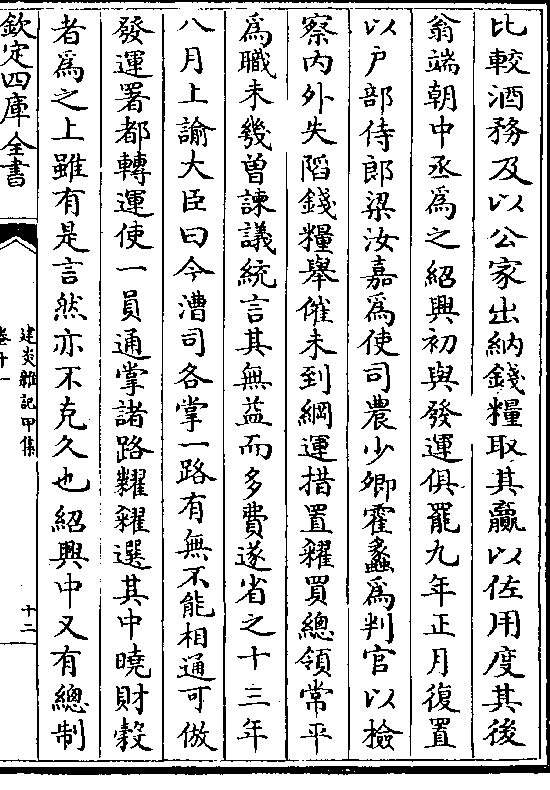 比較酒務及以公家出納錢糧取其贏以佐用度其後
翁端朝中丞為之紹興初與發運俱罷九年正月復置
以户部侍郎梁汝嘉為使司農少卿霍蠡為判官以檢
察内外失䧟錢糧舉催未到綱運措置糴買總領常平
為職未幾曽諫議統言其無益而多費遂省之十三年
八月上諭大臣曰今漕司各掌一路有無不能相通可倣
發運署都轉運使一員通掌諸路糶糴選其中曉財穀
者為之上雖有是言然亦不克久也紹興中又有總制
欽定四庫全書
建炎雜記甲集
卷十一
十二